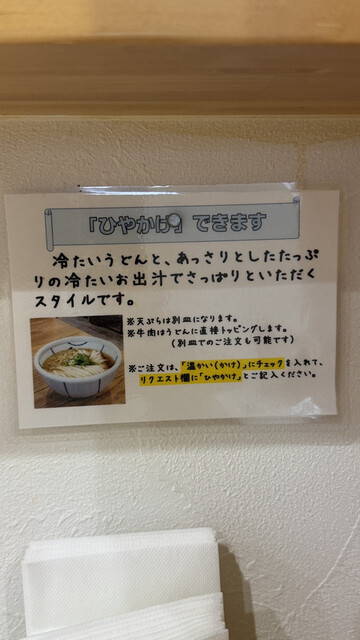 「ひやかけ」できます
冷たいうどんと、あっさりとしたたっぷ
りの冷たいお出汁でさっぱりといただく
スタイルです。
※天ぷらは別皿になります。
※牛肉はうどんに直接トッピングします。
（別皿でのご注文も可能です）
※ご注文は、「温かい(かけ)」にチェックを入れて、
リクエスト欄に「ひやかけ」とご記入ください。